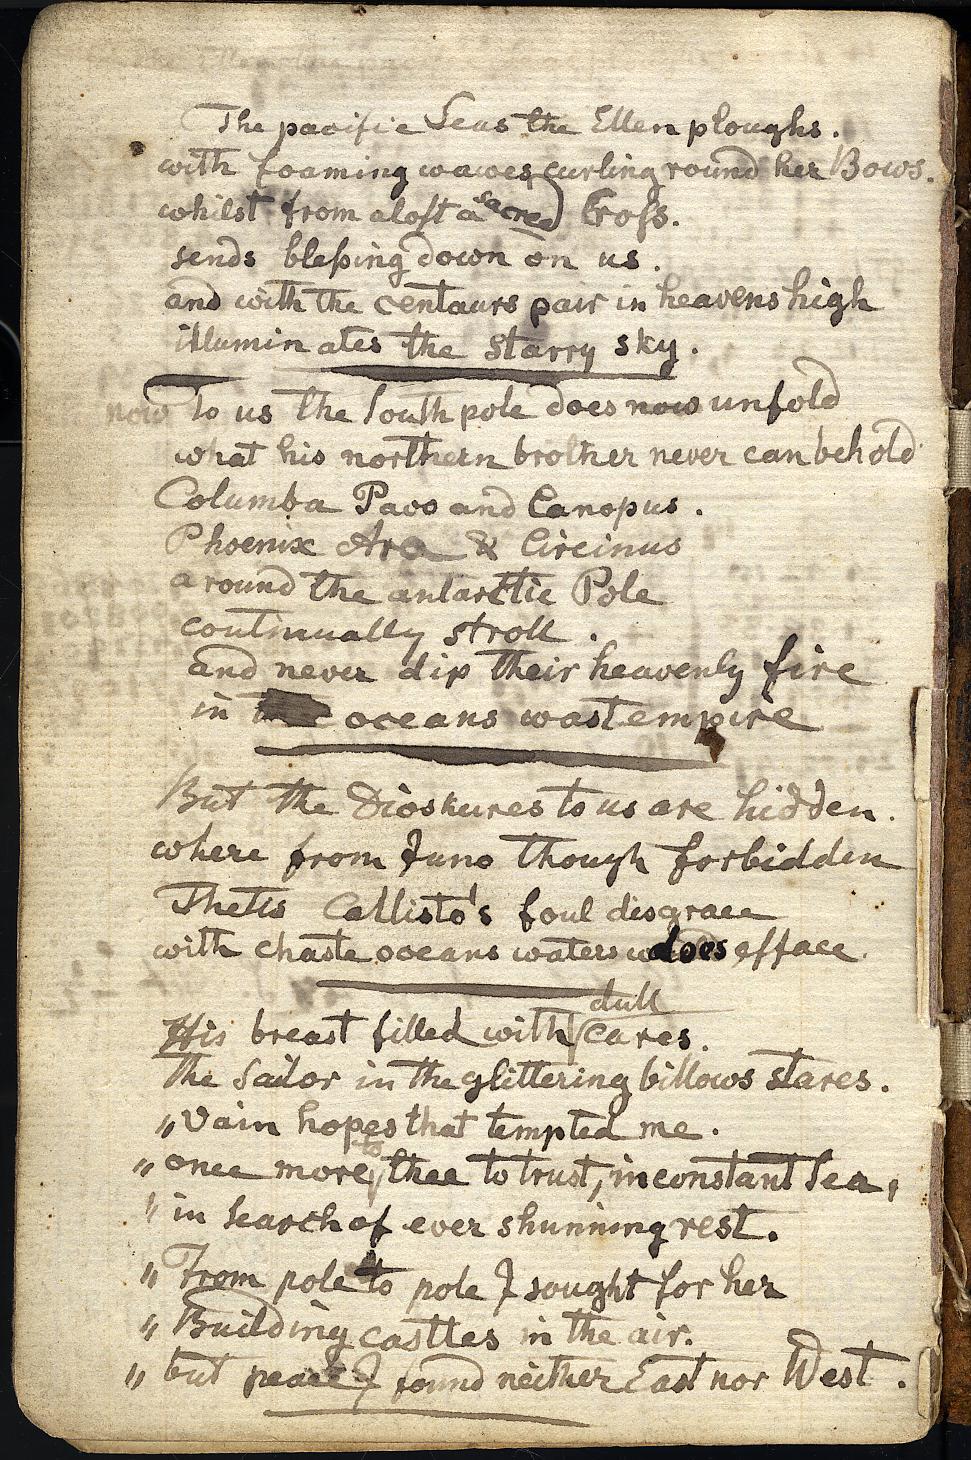 The pacific Seas the Ellen ploughs.
with foaming waves curling round her Bows.
whilst from aloft a sacred Croſs.
sends bleſsing down on us.
and with the centaurs pair in heavens high
illuminates the starry sky.
now to us the South pole does now unfold
what his northern brother never can behold
Columba Pavo and Canopus.
Phoenix Ara & Circinus
around the antarctic Pole
continually stroll.
and never dip their heavenly fire
in oceans wast empire
But the Dioskures to us are hidden.
where from Juno though forbidden
Thetis Callisto's foul disgrace
with chaste oceans waters does efface.
dull
His breast filled with cares.
The Sailor in the glittering billows stares.
„ Vain hopes that tempted me.
to
„ once more thee to trust, inconstant Sea,
„ in Search of ever shunning rest.
„ From pole to pole I sought for her
„ Building castles in the air.
„ but peace I found neither East nor West.